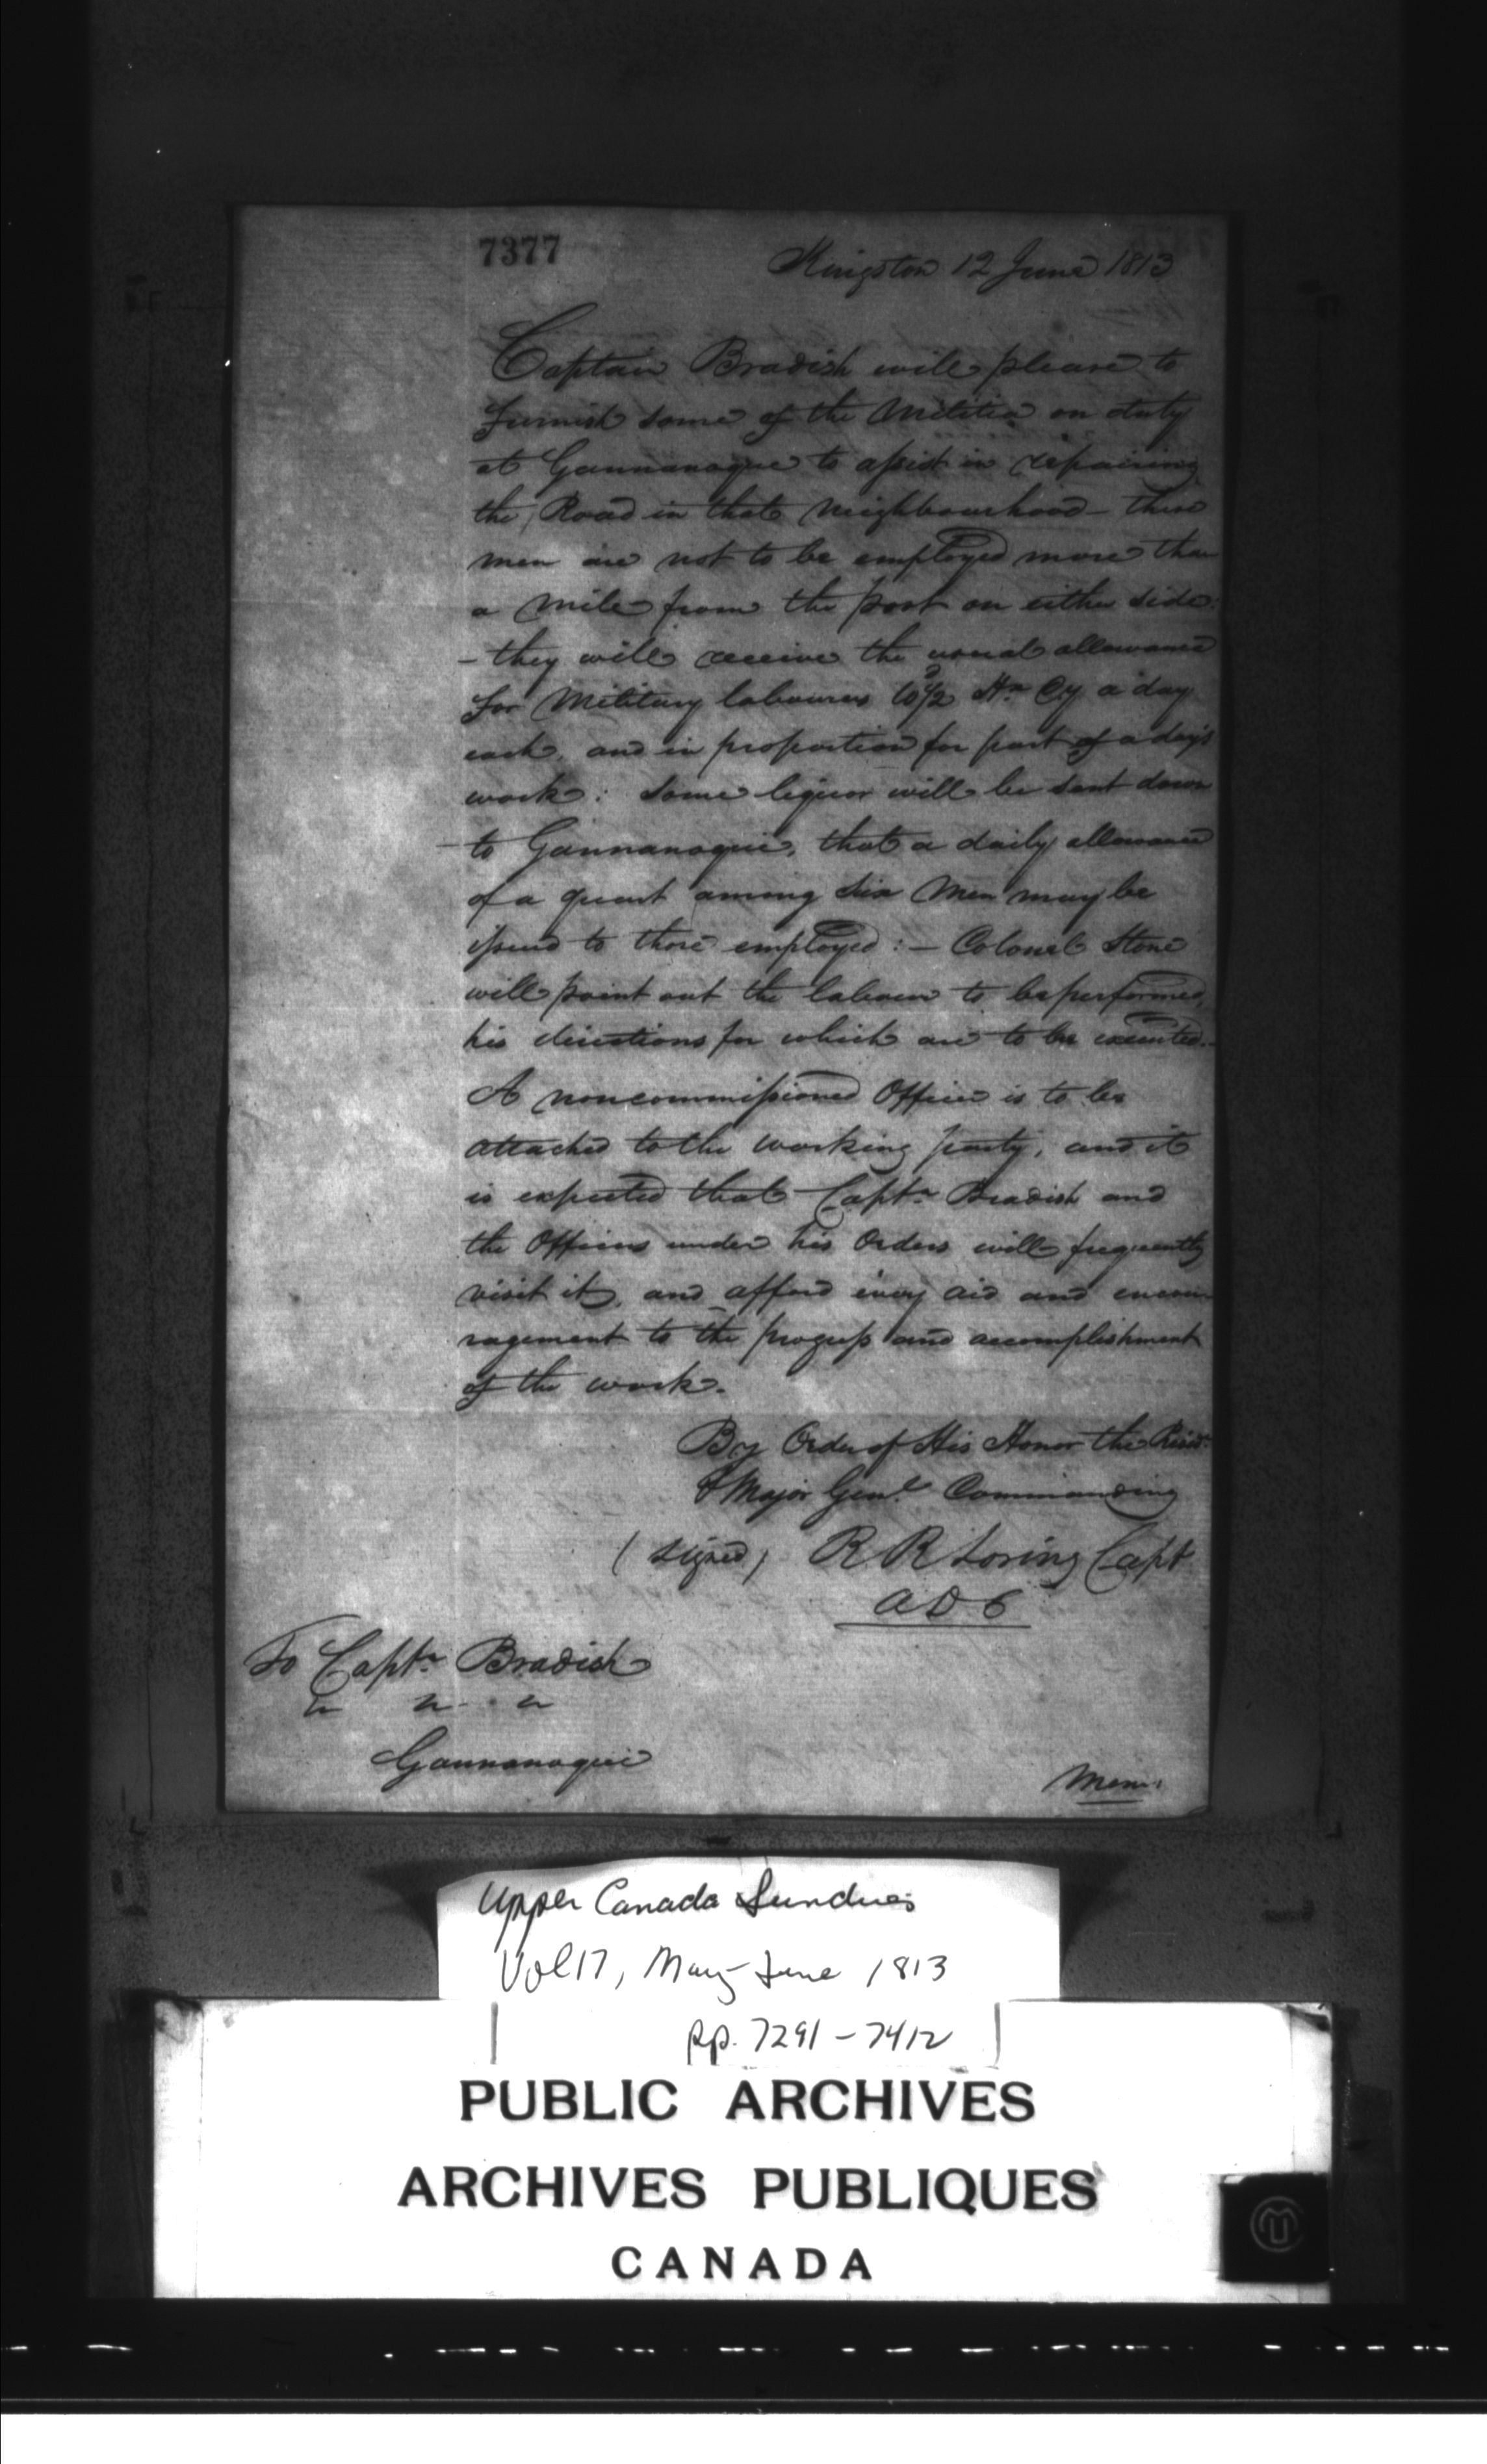 7377
Kingston 12 June 1813
Captain Bradish will please to
furnish some of the Militia on duty
at Gannanoque to assist in repairing
the Road in that Neighbourhood – these
men are not to be employed more than
a Mile from the post on either side:
– they will receive the usual allowance
for Military labourers 10½d Hx Cy a day
each, and in proportion for part of a day's
work: some liquor will be sent down
to Gannanoque, that a daily allowance
of a quart among six Men may be
issued to those employed: – Colonel Stone
will point out the labour to be performed,
his directions for which are to be executed.
A noncommissioned Officer is to be
attached to the working party, and it
is expected that Captn Bradish and
the Officers under his Orders will frequently
visit it, and afford every aid and encou
ragement to the progress and accomplishment
of the work.
By Order of His Honor the Presdt
& Major Genl Commanding
(signed) R R Loring Capt
ADC
To Captn Bradish
Gannanoque
Upper Canada Sundries
Vol 17, May–June 1813
pp. 7291–7412
PUBLIC ARCHIVES
ARCHIVES PUBLIQUES
CANADA